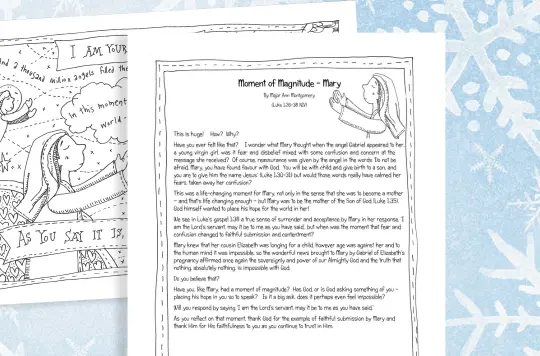 I AM YOUR
and a thousand million angels filled the
In this moment
world -
AS YOU SAY IT IS,
Moment of Magnitude - Mary
By Major Ann Montgomery
(Luke 1:26-38 NIV)
This is huge! How? Why?
Have you ever felt like that? I wonder what Mary thought when the angel Gabriel appeared to her,
a young virgin girl, was it fear and disbelief mixed with some confusion and concern at the
message she received? Of course, reassurance was given by the angel in the words 'Do not be
afraid, Mary, you have found favour with God. You will be with child and give birth to a son, and
you are to give him the name Jesus' (Luke 1:30-31) but would those words really have calmed her
fears, taken away her confusion?
This was a life-changing moment for Mary, not only in the sense that she was to become a mother
- and that's life changing enough - but Mary was to be the mother of the Son of God (Luke 1:35).
God himself wanted to place his hope for the world in her!
We see in Luke's gospel 1:38 a true sense of surrender and acceptance by Mary in her response, 'I
am the Lord's servant, may it be to me as you have said', but when was the moment that fear and
confusion changed to faithful submission and contentment?
Mary knew that her cousin Elizabeth was longing for a child, however age was against her and to
the human mind it was impossible, so the wonderful news brought to Mary by Gabriel of Elizabeth's
pregnancy affirmed once again the sovereignty and power of our Almighty God and the truth that
nothing, absolutely nothing, is impossible with God.
Do you believe that?
Have you, like Mary, had a moment of magnitude? Has God, or is God asking something of you -
placing his hope in you so to speak? Is it a big ask, does it perhaps even feel impossible?
Will you respond by saying, 'I am the Lord's servant, may it be to me as you have said.'
As you reflect on that moment, thank God for the example of faithful submission by Mary and
thank Him for His faithfulness to you as you continue to trust in Him.